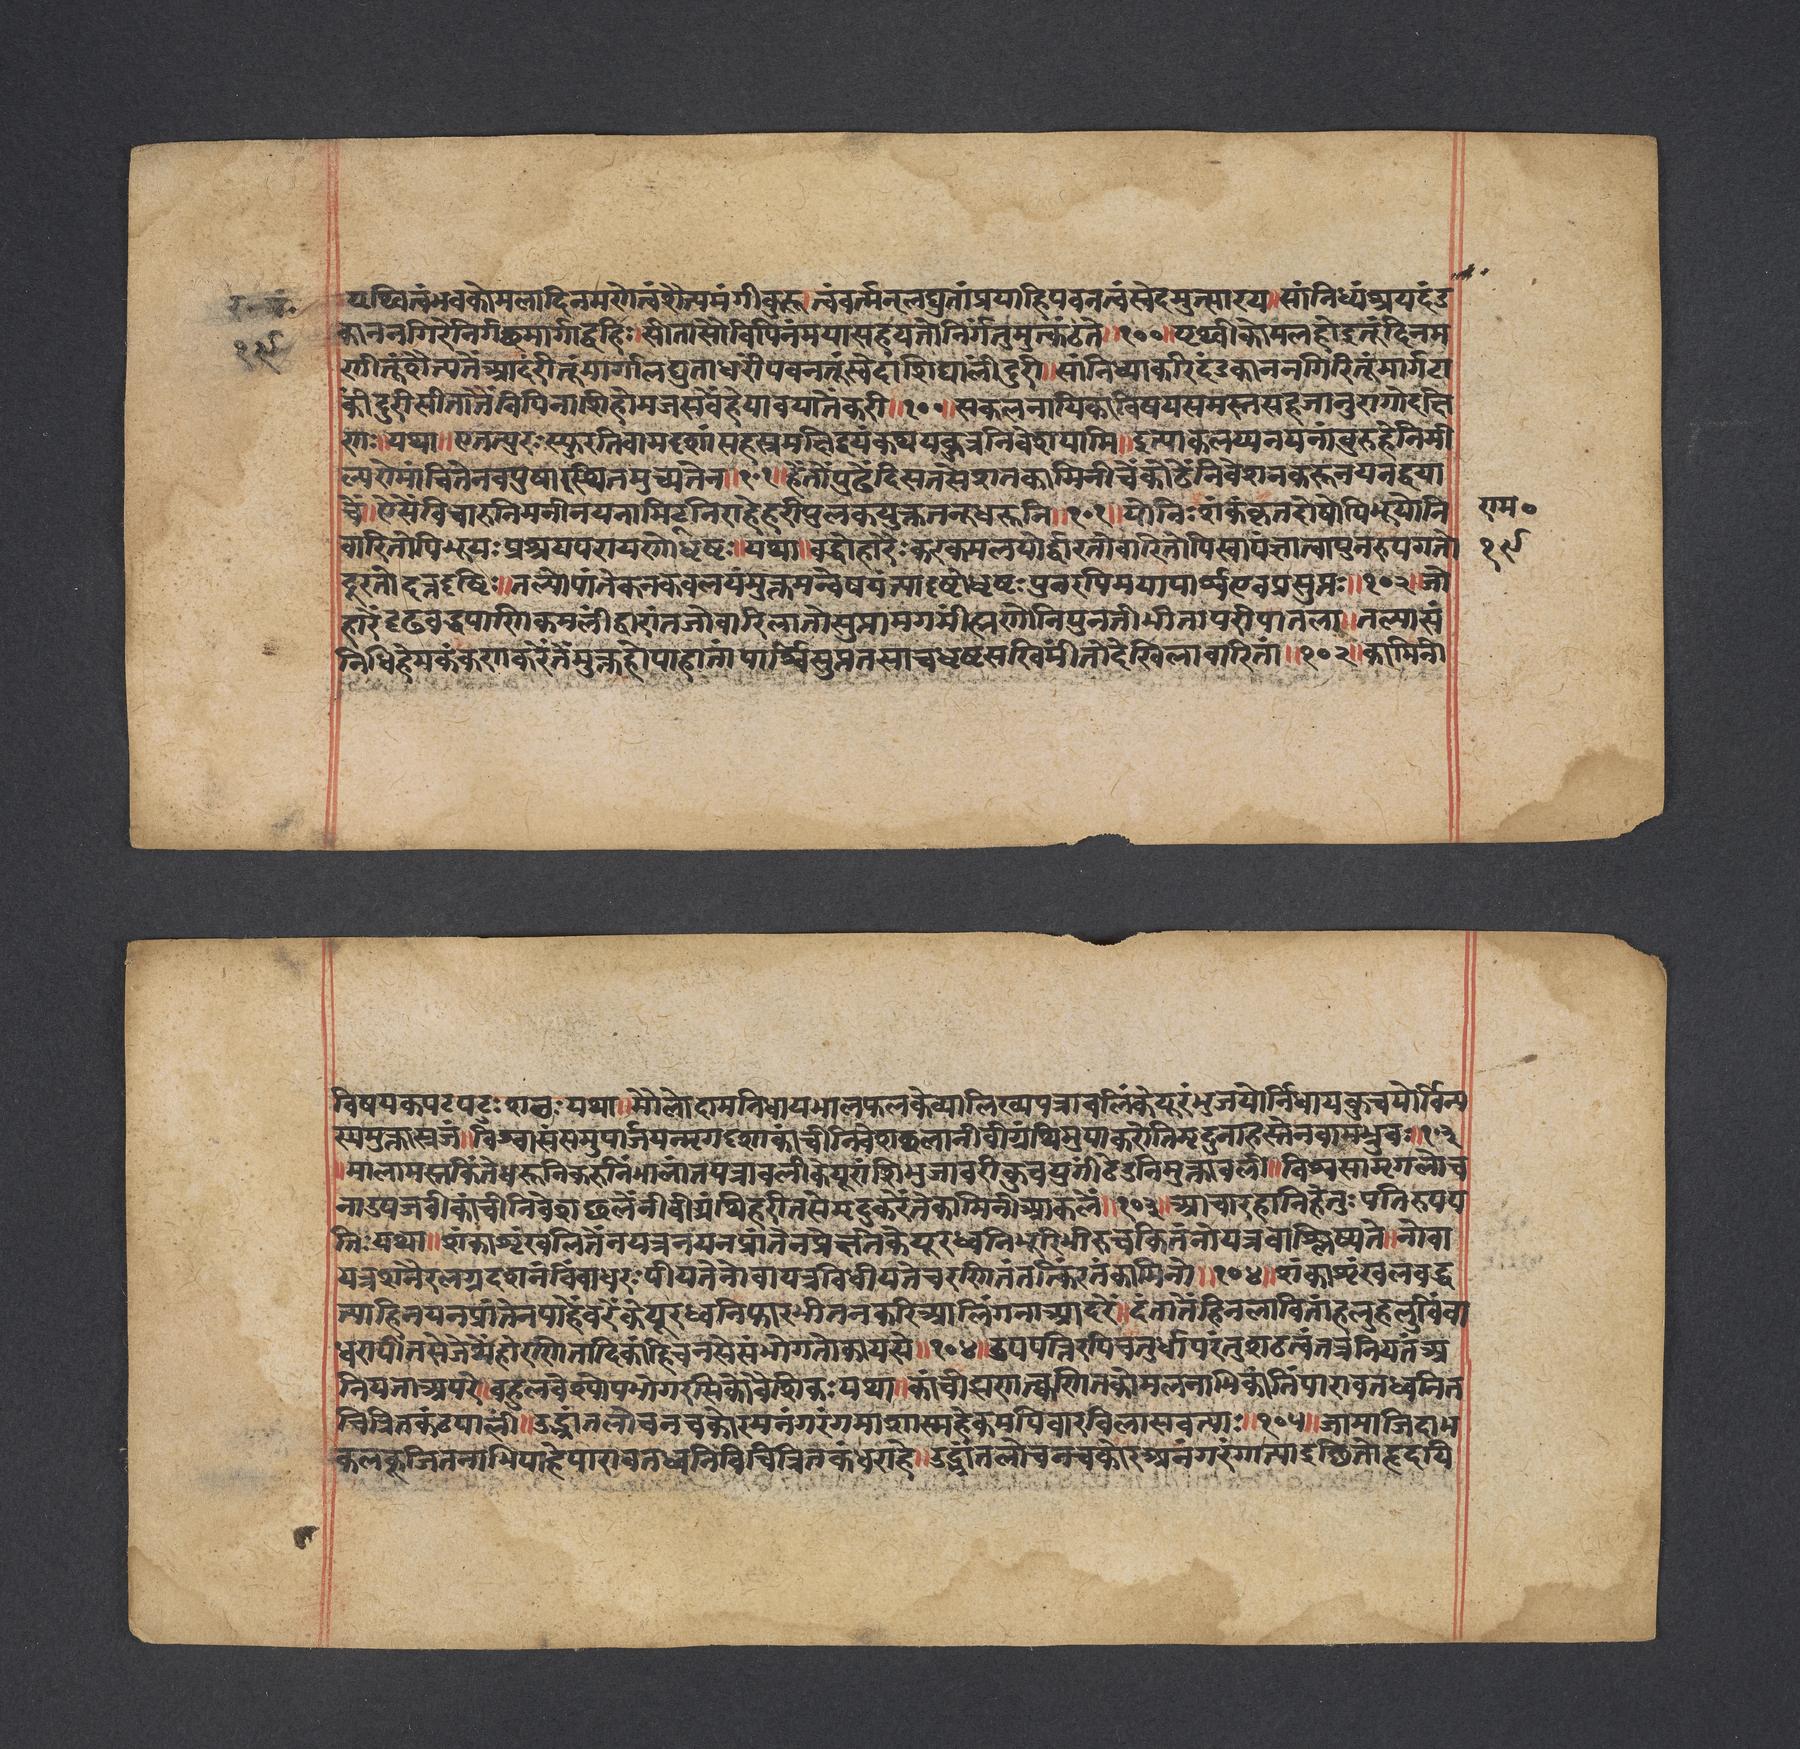 पृथ्वित्वंभवकोमलादिनमणेत्वंशैत्यमंगीकुरु॥त्वंवर्त्मन्लघुतांप्रयाहिपवनत्वंस्वेदमुत्सारय॥सांनिध्यंश्रयदंड
काननगिरेनिर्गछमार्गाद्वहिः॥सीतासौविपिनंमयासहयतोनिर्गंतुमुत्कंठते॥१००॥पृथ्वीकोमलहोइतूंदिनम
णीतूंशैत्यतेंआदरीतूंमार्गालघुताधरीपवनतूंस्वेदांशिघालीदुरी॥सांनिध्याकरिदंडकाननगिरितूंमार्गटा
कीदुरीसीतातेंविपिनाशिहोमजसवेंहेयावयातेंकरी॥१००॥सकलनायिकाविषयसमस्तसहजानुरागोदक्षि
णः॥यथा॥एतत्पुरःस्फुरतिवामदृशांसहस्रमक्षिद्वयंकथयकुत्रनिवेशयामि॥इत्याकलय्यनयनांबुरुहेनिमी
ल्यरोमांचितेनवपुषास्थितमच्युतेन॥१०१॥हेतोंपुढेंदिसतसेशतकामिनीचेंकोठेंनिवेशनकरूनयनद्वया
चें॥ऐसेंविचारुनिमनीनयनामिटुनिराहेहरीपुलकयुक्ततनूधरूनि॥१०१॥योनिःशंकंकृतदोषोपिभूयोनि
वारितोपिभूयःप्रश्रयपरायणोधृष्टः॥यथा॥बद्धोहारैःकरकमलयोर्द्वारतोवारितोपिस्वापंज्ञात्वापुनरुपगतो
दूरतोदत्तदृष्टिः॥तल्पोपांतेकनकवलयंमुक्तमन्वेषयंत्यादृष्टोधृष्टःपुनरपिमयापार्श्वएवप्रसुप्तः॥१०२॥जो
हारेंदृढबद्धपाणिकमलींद्वारांतजोवारिलातोसुप्तामगमींह्मणोनिपुनतीभीतापरीपातला॥तल्पासं
निधिहेमकंकणकरेंतेंमुक्तहोपाहातांपार्श्वेसुप्ततसाचधृष्टसखिमींतोदेखिलावारितां॥१०२॥कामिनी
राम॰
१९
विषयकपटपटुःशठःयथा॥मौलौदामनिधायभालफलकेव्यालिख्यपत्रावलिंकेयूरंभुजयोर्निधायकुचयोर्विन्य
स्यमुक्तास्रजं॥विश्वासंसमुपार्जयन्मृगदृशःकांचीनिवेशछलानीवीग्रंथिमुपाकरोतिमृदुनाहस्तेनवामभ्रुवः॥१०३
॥मालामस्तकिंतेधरूनिकरुनिंभाळांतपत्रावलीकेयूरांशिभुजावरीकुचयुगीटेउनिमुक्तावली॥विश्वासामगलोच
नाउपजवीकांचीनिवेशछलेंनीवीग्रंथिहरीतसेमृदुकरेंतेकामिनीआकलें॥१०३॥आचारहानिहेतुःपतिरुपप
तिःयथा॥शंकाशृंखलितेंनयत्रनयनप्रांतेनप्रेक्षितेकेयूरध्वनिभूरिभीरुचकितंनोयत्रवाश्लिष्यते॥नोवा
यत्रशनैरलग्नदशनंबिंबाधरःपीयतेनोवायत्रविधीयतेचरणितंतत्किंरतंकामिनो॥१०४॥शंकाशृंखलबद्ध
त्याहिनयनप्रांतेनपाहेंबरेंकेयूरध्वनिफारभीतनकरिआलिंगनाआदरें॥दंतातेंहिनलावितांहलुहलुबिंबा
धरापीतसेजेथेंहोरणितादिकांहिचनसेसंभोगतोकायसे॥१०४॥उपपतिरपिचतुर्धापरंतुशठत्वंतत्रनियतंअ
नियताअपरे॥बहुलवेश्योपभोगरसिकोवैशिकःयथा॥कांचीक्वणत्क्वणितकोमलनाभिकांतिंपारावतध्वनित
चित्रितकंठपालीं॥उद्भ्रांतलोचनचकोरमनंगरंगमाशास्महेकमपिवारविलासवत्याः॥१०५॥जामाजिदाम
कलकूजितनाभिपाहेपारावतध्वनिविचित्रितकंधराहे॥उद्भ्रांतलोचनचकोरअनंगरंगात्याइछितोहृदयि